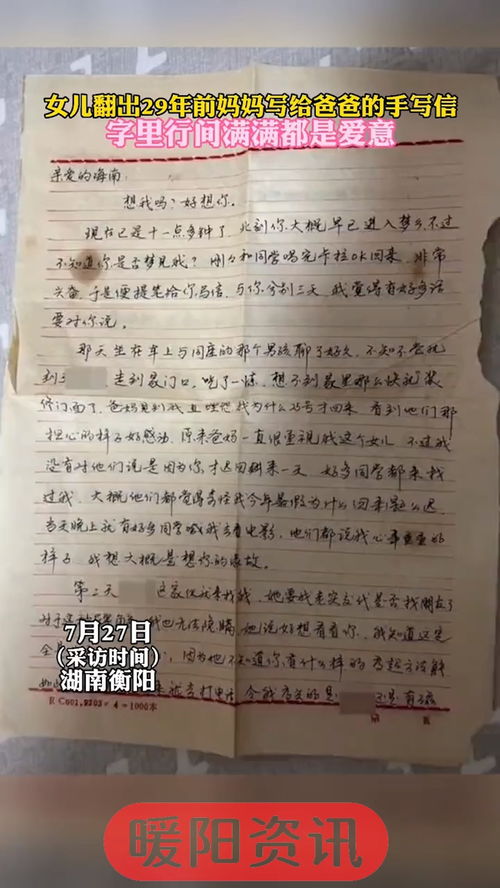 女儿翻出29年前妈妈写给爸爸的手写信
字里行间满满都是爱意
亲爱的海南:
想我吗?好想你。
现在已是十一点多钟了,此刻你大概早已进入梦乡不过
不知道你是否梦见我?刚刚和同学唱完卡拉OK回来,非常
兴奋,于是便提笔给你写信,与你分别三天,我觉得有好多话
要对你说。
那天坐在车上与同座的那个男孩聊了好久,不知不觉就
到,走到家门口,吃了一惊,想不到家里那么快就装
修门面了,爸妈见到我直埋怨我为什么25号才回来,看到他们那
担心的样子好感动,原来爸妈一直很重视我这个女儿,不过我
没有对他们说是因为你才迟回来一天,好多同学都来找
过我,大概他们都觉得奇怪我今年暑假为什么回来这么迟,
当天晚上就有好多同学喊我去看电影,他们都说我心事重重的
样子,我想大概是想你的缘故。
第二天 这家伙就来找我,她要我老实交代是否找朋友了
我也无法隐瞒,她说好想看看你,我知道这完
全 因为她不知道你有什么样的
7月27日
(采访时间)
湖南衡阳
暖阳资讯